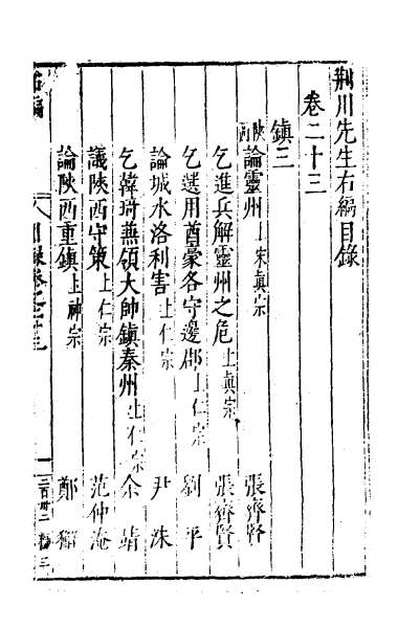 荆川先生右編目錄
卷二十三
鎮三
陝西
論靈州上宋真宗 張齊賢
乞進兵解靈州之危上真宗 張齊賢
乞選用酋豪各守邊郡上仁宗 劉平
論城水洛利害上仁宗 尹洙
乞韓琦兼領大帥鎮秦州上仁宗 余靖
議陝西守策上仁宗 范仲淹
論陝西重鎮上神宗 鄭獬
右編 目錄卷之廿三